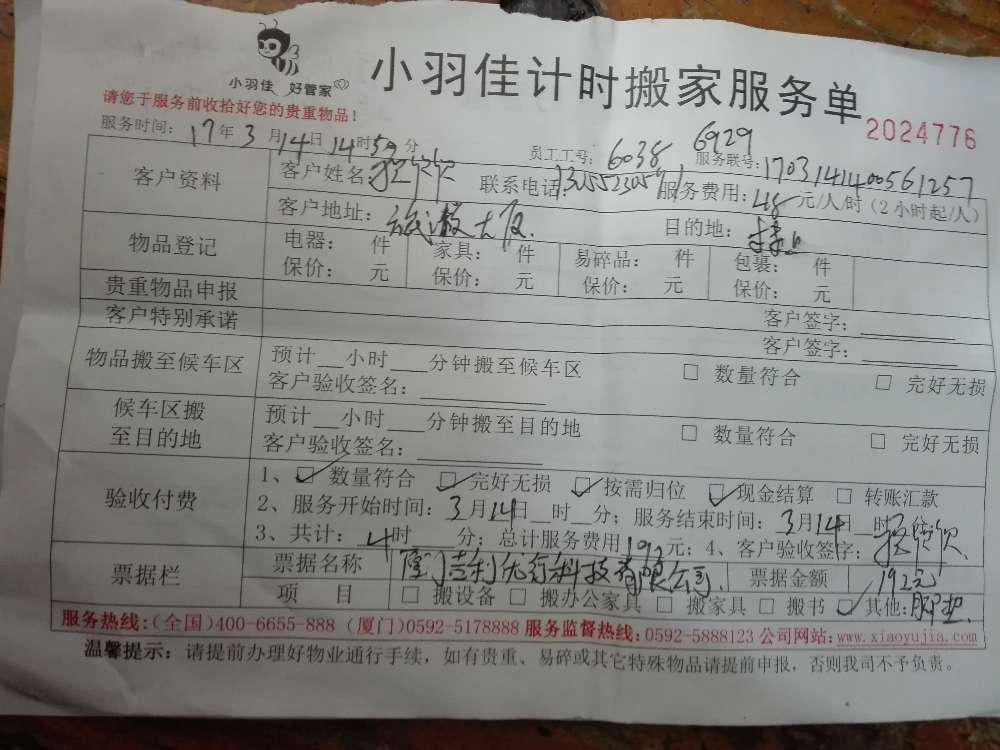 小羽佳 好管家
小羽佳计时搬家服务单
请您于服务前收拾好您的贵重物品！
2024776
服务时间：17年3月14日14时59分 员工工号：6038 6929 服务联号：1703141400561257
客户资料 客户姓名： 联系电话： 服务费用：48元/人/时（2小时起/人）
客户地址： 大厦. 目的地：楼上
物品登记 电器： 件 家具： 件 易碎品： 件 包裹： 件
保价： 元 保价： 元 保价： 元 保价： 元
贵重物品申报 客户签字：
客户特别承诺 客户签字：
物品搬至候车区 预计__小时___分钟搬至候车区 □ 数量符合 □ 完好无损
客户验收签名：
候车区搬至目的地 预计__小时___分钟搬至目的地 □ 数量符合 □ 完好无损
客户验收签名：
验收付费 1、☑ 数量符合 ☑ 完好无损 ☑ 按需归位 ☑ 现金结算 □ 转账汇款
2、服务开始时间：3月14日__时__分；服务结束时间：3月14日__时__分；
3、共计：4时__分；总计服务费用192元；4、客户验收签字：
票据栏 票据名称 厦门吉利优行科技有限公司. 票据金额 192元
项 目 □ 搬设备 □ 搬办公家具 □ 搬家具 □ 搬书 ☑ 其他：
服务热线：（全国）400-6655-888（厦门）0592-5178888 服务监督热线：0592-5888123 公司网站：www.xiaoyujia.com
温馨提示：请提前办理好物业通行手续，如有贵重、易碎或其它特殊物品请提前申报，否则我司不予负责。